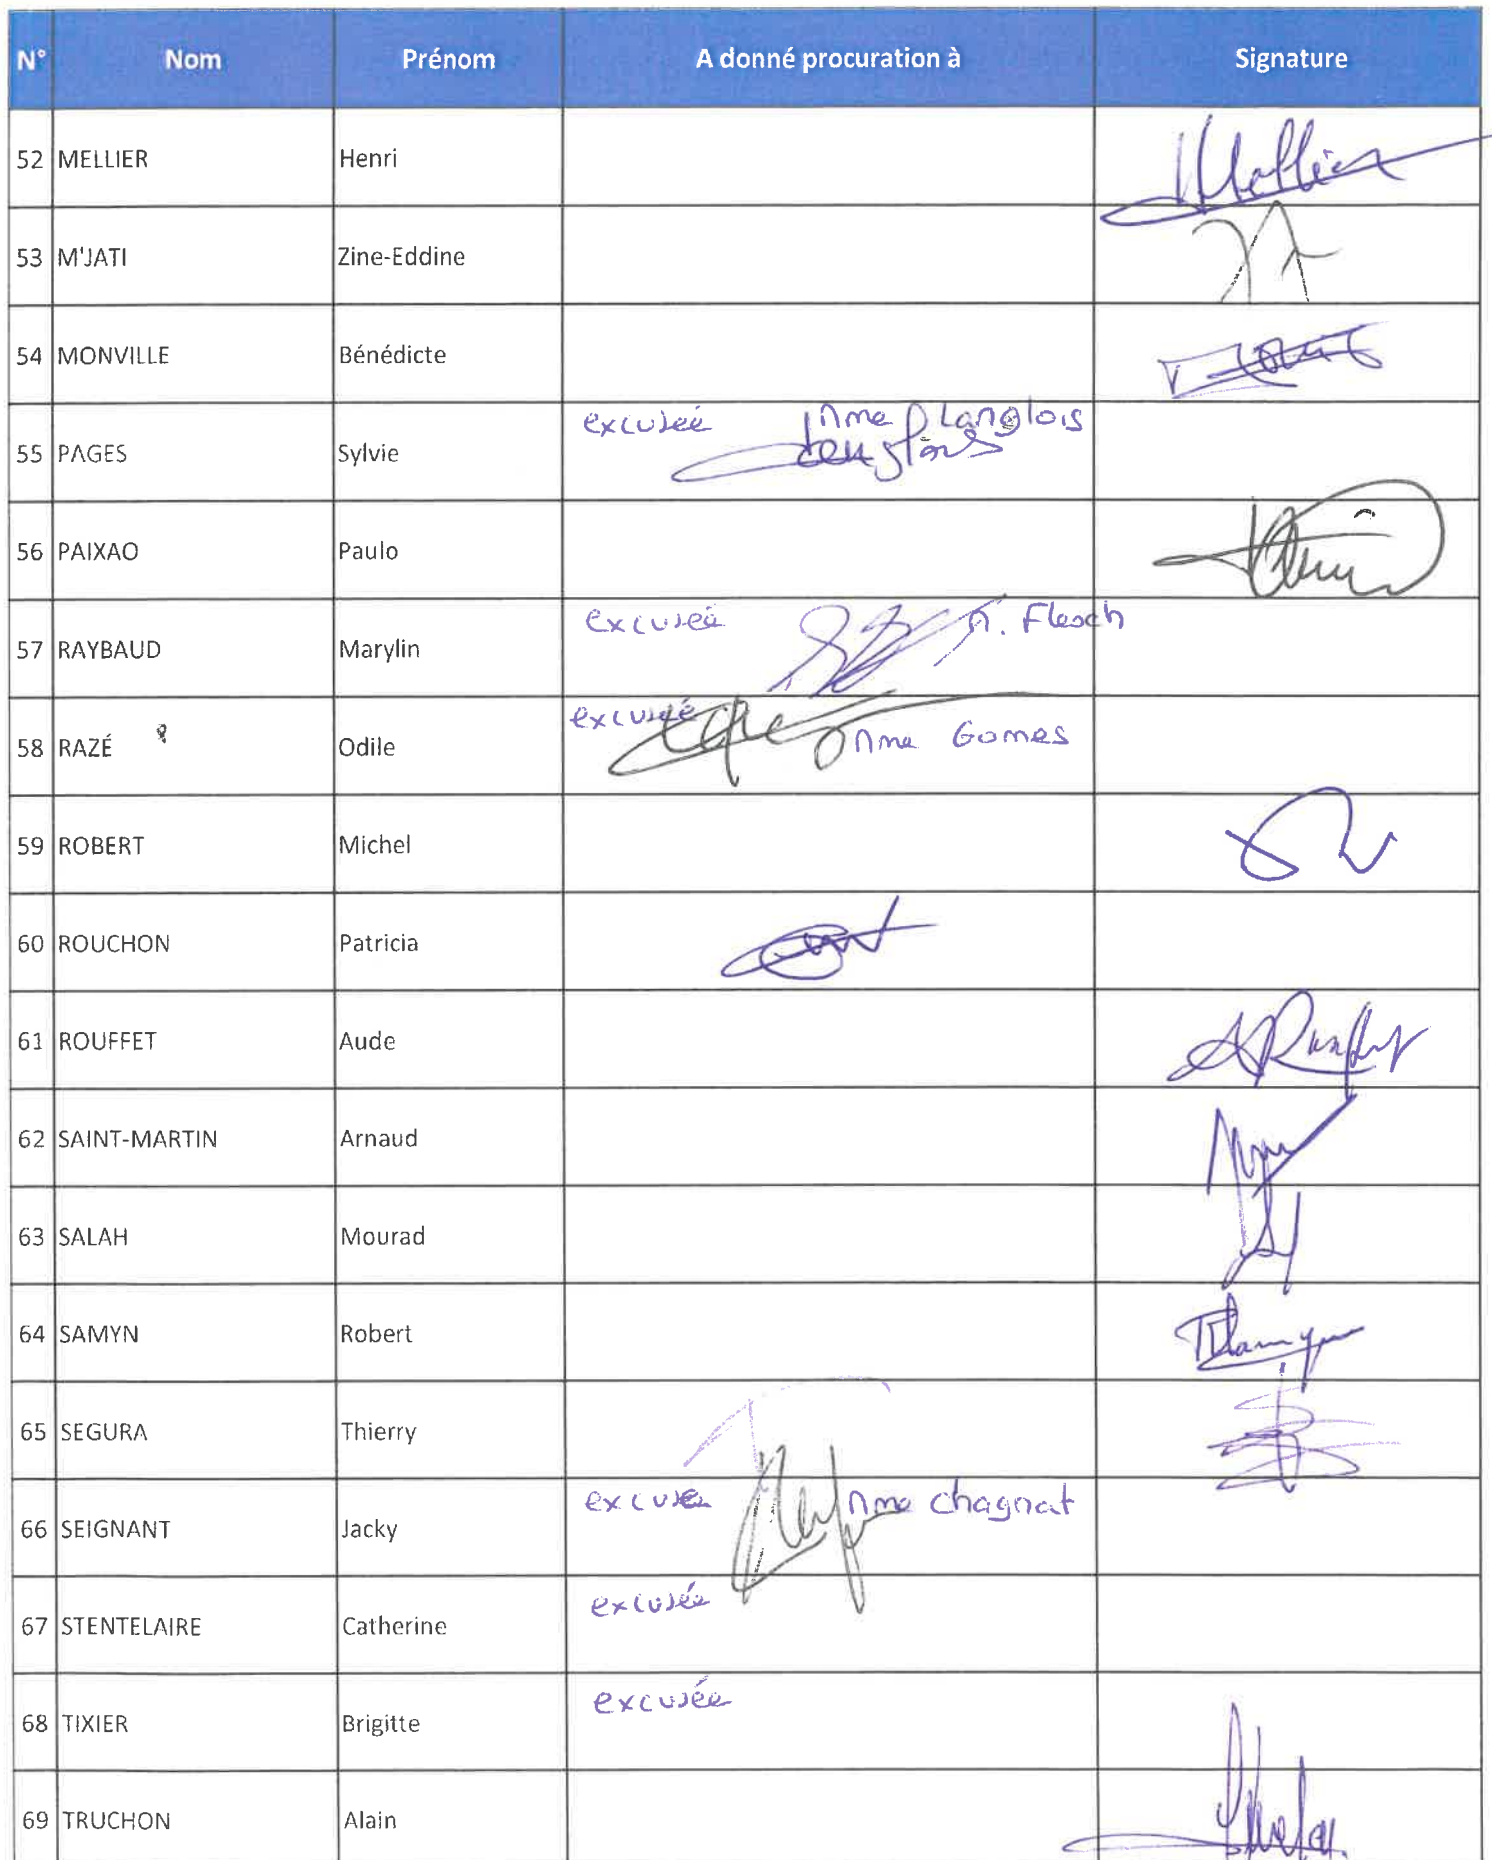 N° Nom Prénom A donné procuration à Signature
52 MELLIER Henri
53 M'JATI Zine-Eddine
54 MONVILLE Bénédicte
55 PAGES Sylvie excuseé Mme Langlois
56 PAIXAO Paulo
57 RAYBAUD Marylin excuseé M. Flesch
58 RAZÉ Odile excuseé Mme Gomes
59 ROBERT Michel
60 ROUCHON Patricia
61 ROUFFET Aude
62 SAINT-MARTIN Arnaud
63 SALAH Mourad
64 SAMYN Robert
65 SEGURA Thierry
66 SEIGNANT Jacky Mme chagnat
67 STENTELAIRE Catherine excusée
68 TIXIER Brigitte excusée
69 TRUCHON Alain